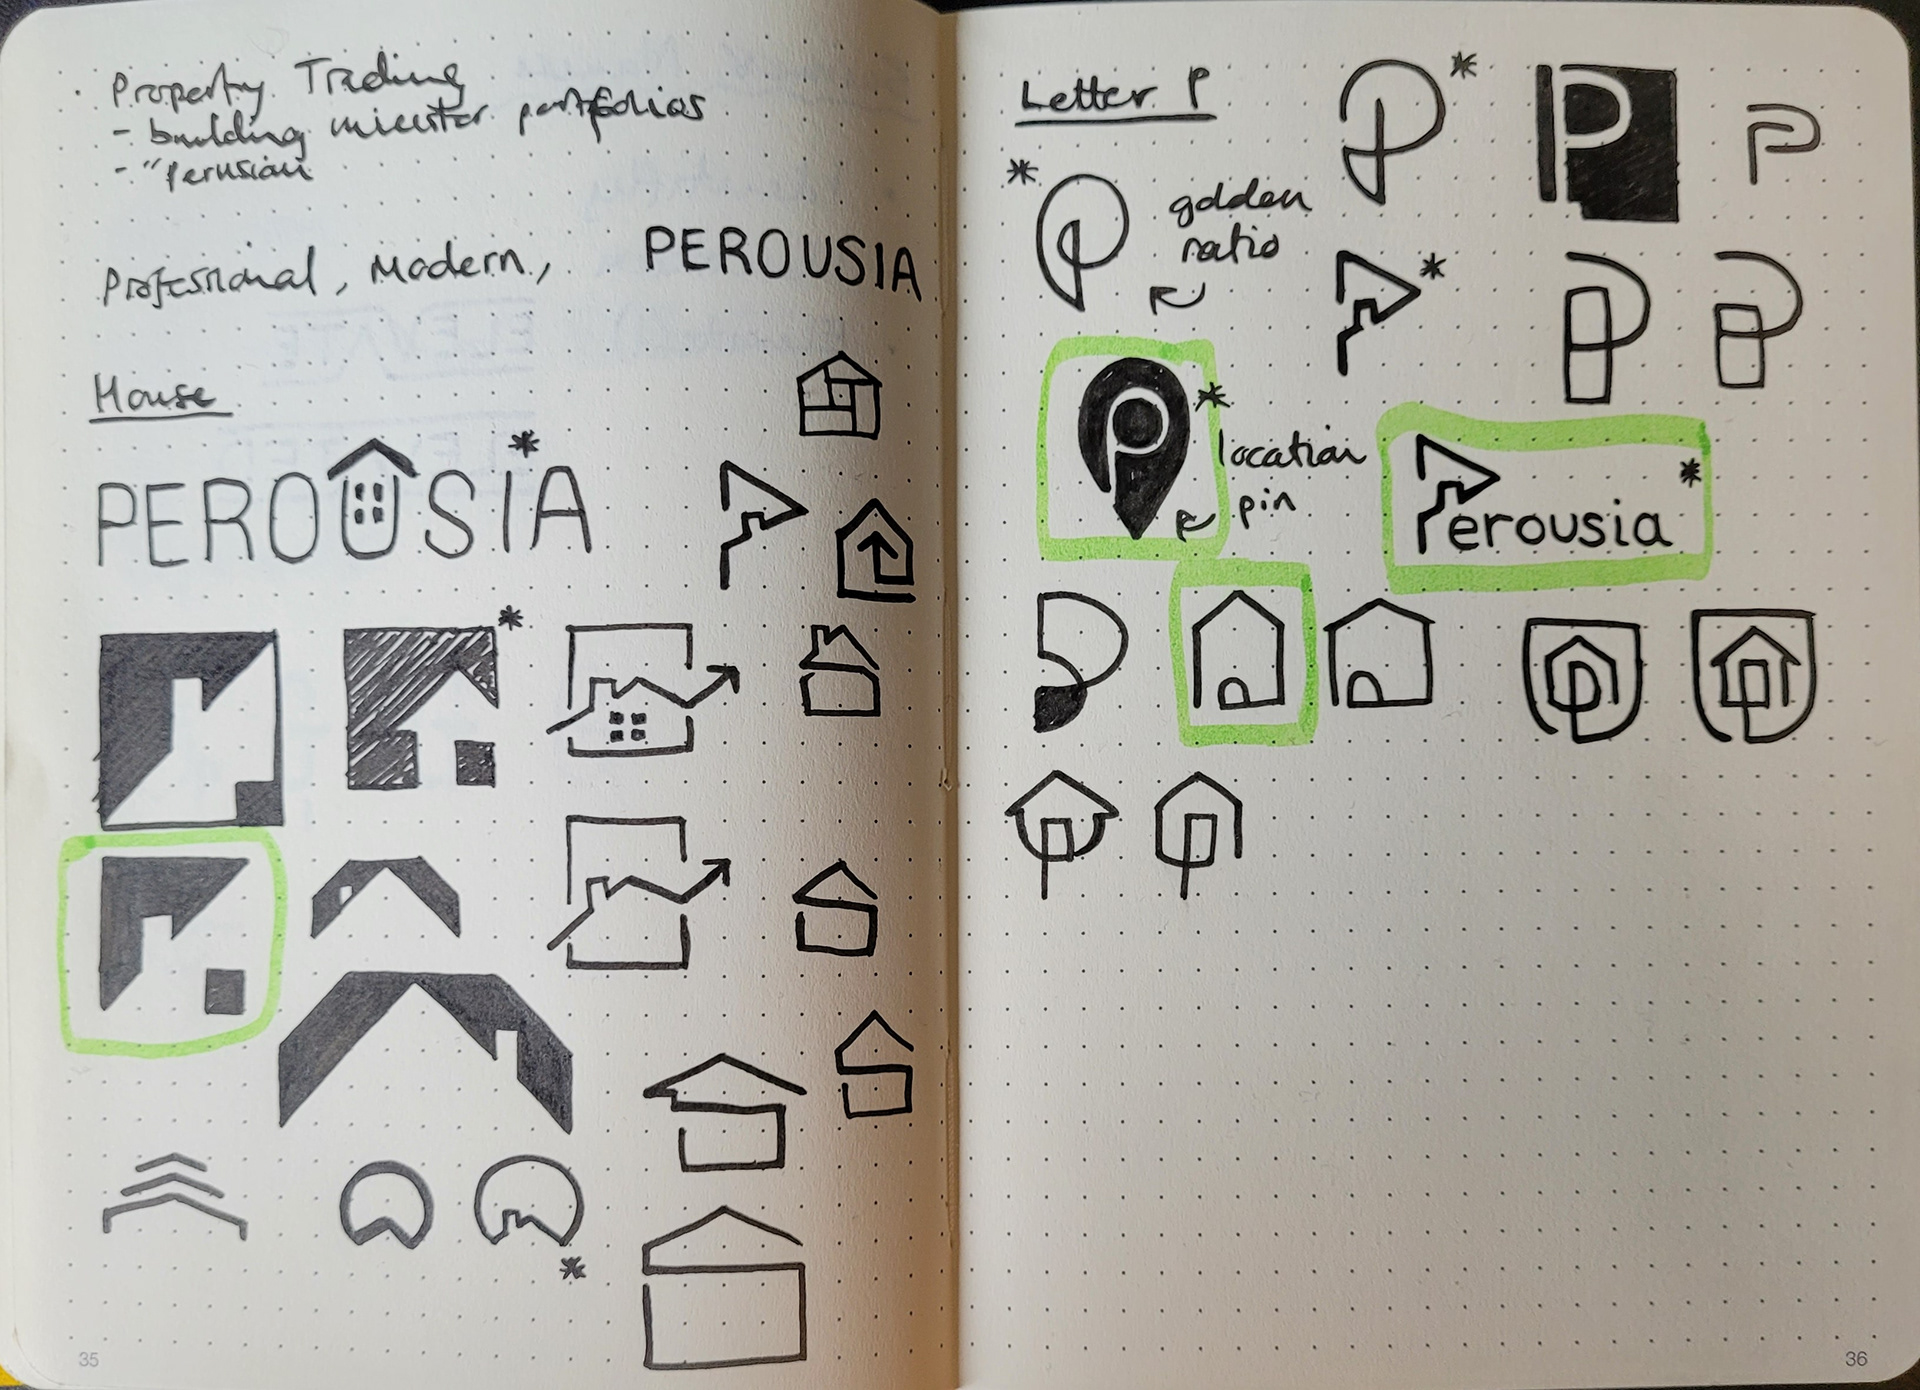 Property Trading
- building investor portfolios
- "perusian
Professional, Modern,
PEROUSIA
House
PEROUSIA
35
Letter P
golden
ratio
location
pin
Perousia
36